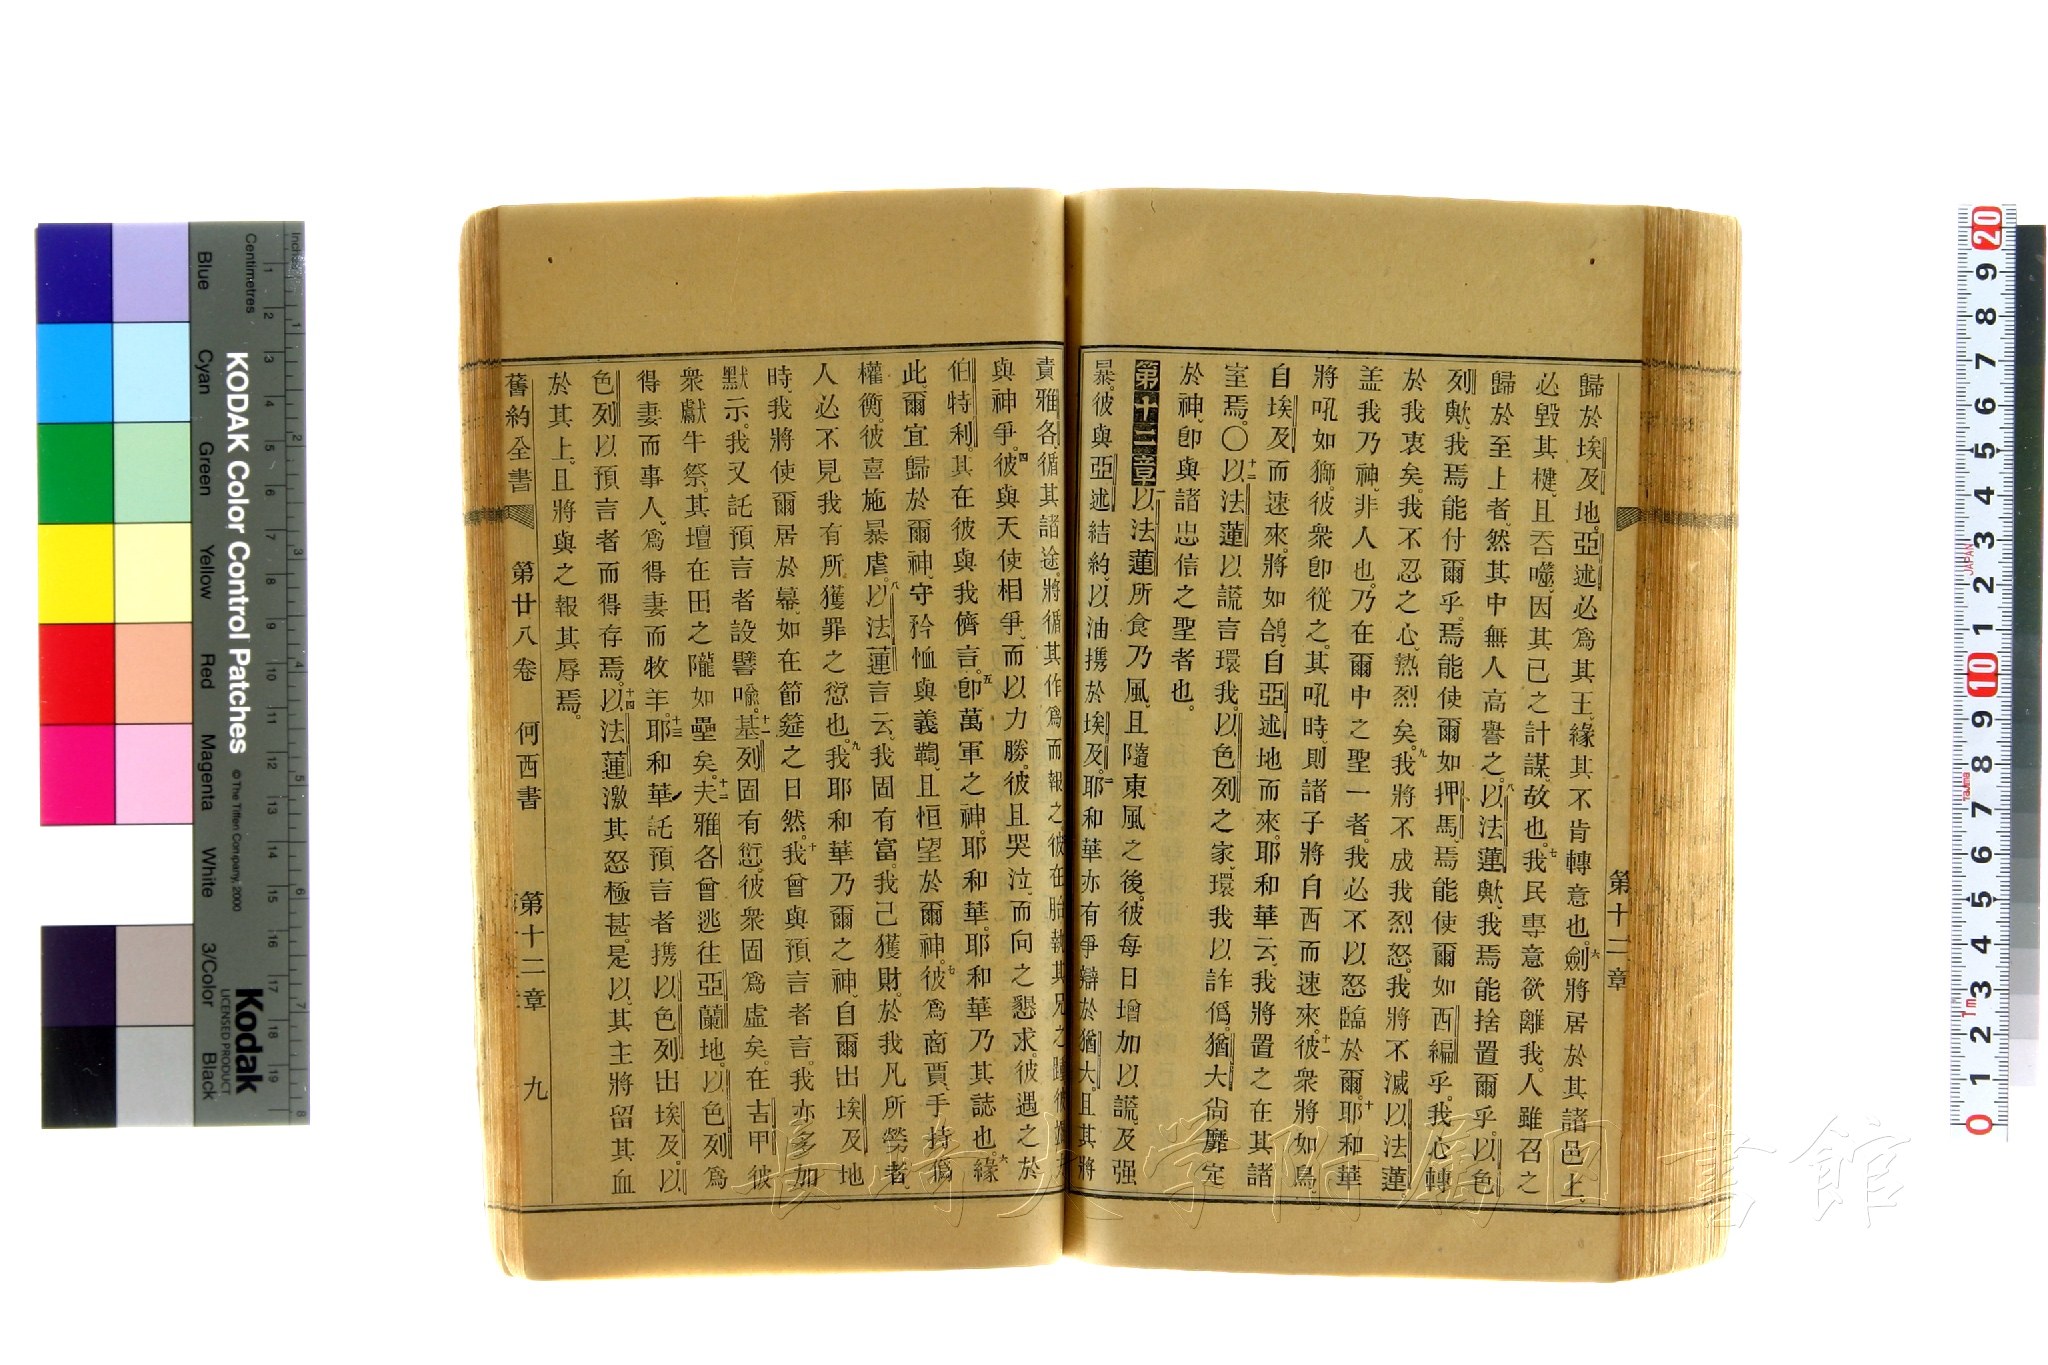 第十二章
歸於埃及地。亞述必爲其王、緣其不肯轉意也。六劍將居於其諸邑上、
必毀其楗、且吞噬、因其己之計謀故也。七我民專意欲離我。人雖召之
歸於至上者、然其中無人高譽之。八以法蓮歟、我焉能捨置爾乎。以色
列歟、我焉能付爾乎。焉能使爾如押馬、焉能使爾如西編乎。我心轉
於我衷矣。我不忍之心、熱烈矣。九我將不成我烈怒。我將不滅以法蓮
盖我乃神、非人也。乃在爾中之聖一者。我必不以怒臨於爾。十耶和華
將吼如獅。彼衆卽從之。其吼時、則諸子將自西而速來。十一彼衆將如鳥、
自埃及而速來、將如鴿、自亞述地而來。耶和華云、我將置之在其諸
室焉。〇十二以法蓮以謊言環我。以色列之家、環我以詐僞。猶大尙靡定
於神、卽與諸忠信之聖者也。
第十二章 一以法蓮所食乃風、且隨東風之後。彼每日增加以謊、及强
暴。彼與亞述結約、以油攜於埃及。二耶和華亦有爭辯於猶大。且其將
責雅各、循其諸途。將循其作爲而報之彼在胎執其兄之
與神爭。四彼與天使相爭、而以力勝。彼且哭泣、而向之懇求。彼遇之於
伯特利。其在彼與我儕言。五卽萬軍之神。耶和華。耶和華乃其誌也。六緣
此、爾宜歸於爾神、守矜恤與義鞫、且恒望於爾神。七彼爲商賈、手持僞
權衡彼喜施暴虐。八以法蓮言云、我固有富。我己獲財。於我凡所勞者、
人必不見我有所獲罪之愆也。九我耶和華乃爾之神、自爾出埃及地
時、我將使爾居於幕、如在節筵之日然。十我曾與預言者言。我亦多加
默示。我又託預言者設譬喩。十一基列固有愆。彼衆固爲虛矣。在吉甲彼
衆獻牛祭。其壇在田之隴如壘矣。十二夫雅各曾逃往亞蘭地。以色列爲
得妻而事人、爲得妻而牧羊。十三耶和華託預言者攜以色列出埃及。以
色列以預言者而得存焉。十四以法蓮激其怒極甚。是以其主將留其血
於其上、且將與之報其辱焉。
舊約全書 第廿八卷 何西書 第十二章 九
KODAK Color Control Patches
© The Tiffen Company, 2000
Kodak
LICENSED PRODUCT
Inches
Centimetres
Blue
Cyan
Green
Yellow
Red
Magenta
White
3/Color
Black
1 2 3 4 5 6 7 8 9 10 11 12 13 14 15 16 17 18 19
1 2 3 4 5 6 7 8
20 9 8 7 6 5 4 3 2 1 10 9 8 7 6 5 4 3 2 1 0
JAPAN
1m
長崎大学附属図書館